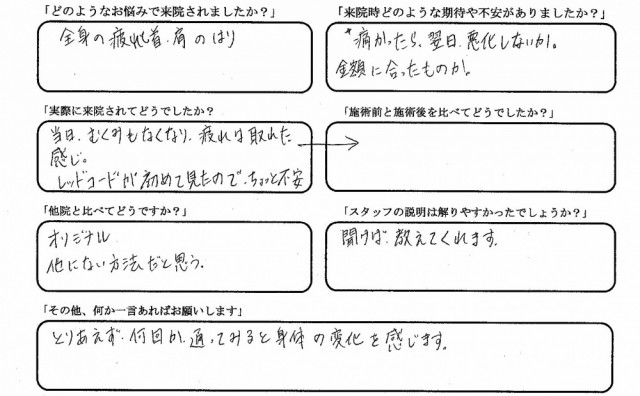 「どのようなお悩みで来院されましたか？」
全身の疲れ首.肩のはり
「来院時どのような期待や不安がありましたか？」
*痛かったら、翌日.悪化しないか。
金額に合ったものか。
「実際に来院されてどうでしたか？
当日、むくみもなくなり、疲れは取れた
感じ。
レッドコードが初めて見たので.ちょっと不安
「施術前と施術後を比べてどうでしたか？」
「他院と比べてどうですか？」
オリジナル
他にない方法だと思う。
「スタッフの説明は解りやすかったでしょうか？」
聞けば.教えてくれます.
「その他、何か一言あればお願いします」
とりあえず.何回か.通ってみると身体の変化を感じます。